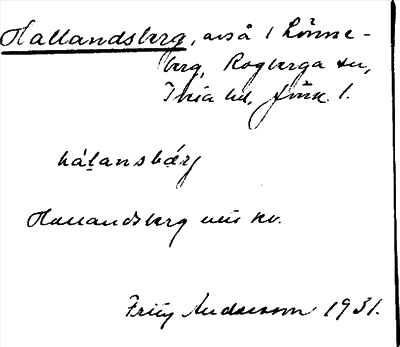 Hallandsberg, avså i Lönne-
berg, Rogberga sn,
Tveta hd, Jönk. l.
hálansbærj
Hallandsberg uu kv.
Fritz Andersson 1931.